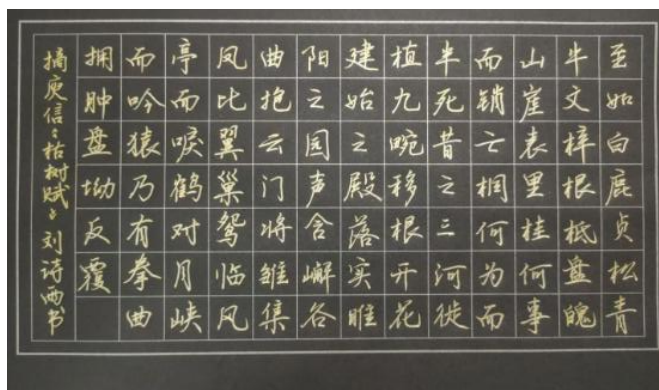 至如白鹿贞松青
牛文梓根柢盘魄
山崖表里桂何事
而销亡桐何为而
半死昔之三河徙
植九畹移根开花
建始之殿落实睢
阳之园声含嶰谷
曲抱云门将雏集
凤比翼巢鸳临风
亭而唳鹤对月峡
而吟猿乃有拳曲
拥肿盘坳反覆
摘庾信《枯树赋》刘诗西书